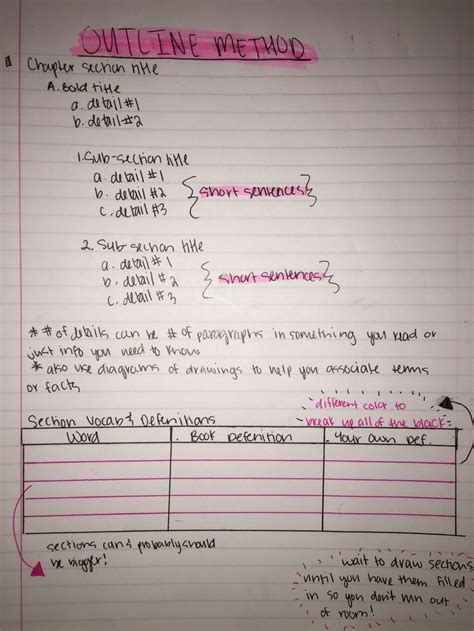 OUTLINE METHOD
I Chapter section title
A. Bold title
a. detail #1
b. detail #2
1. Sub-section title
a. detail #1
b. detail #2
c. detail #3
short sentences
2. Sub section title
a. detail #1
b. detail #2
c. detail #3
short sentences
* # of details can be # of paragraphs in something you read or
just info you need to know
* also use diagrams of drawings to help you associate terms
or facts
different color to
break up all of the black
Section Vocab & Definitions
Word Book Definition Your Own Def.
sections can & probably should
be bigger!
wait to draw sections
until you have them filled
in so you don't run out
of room!